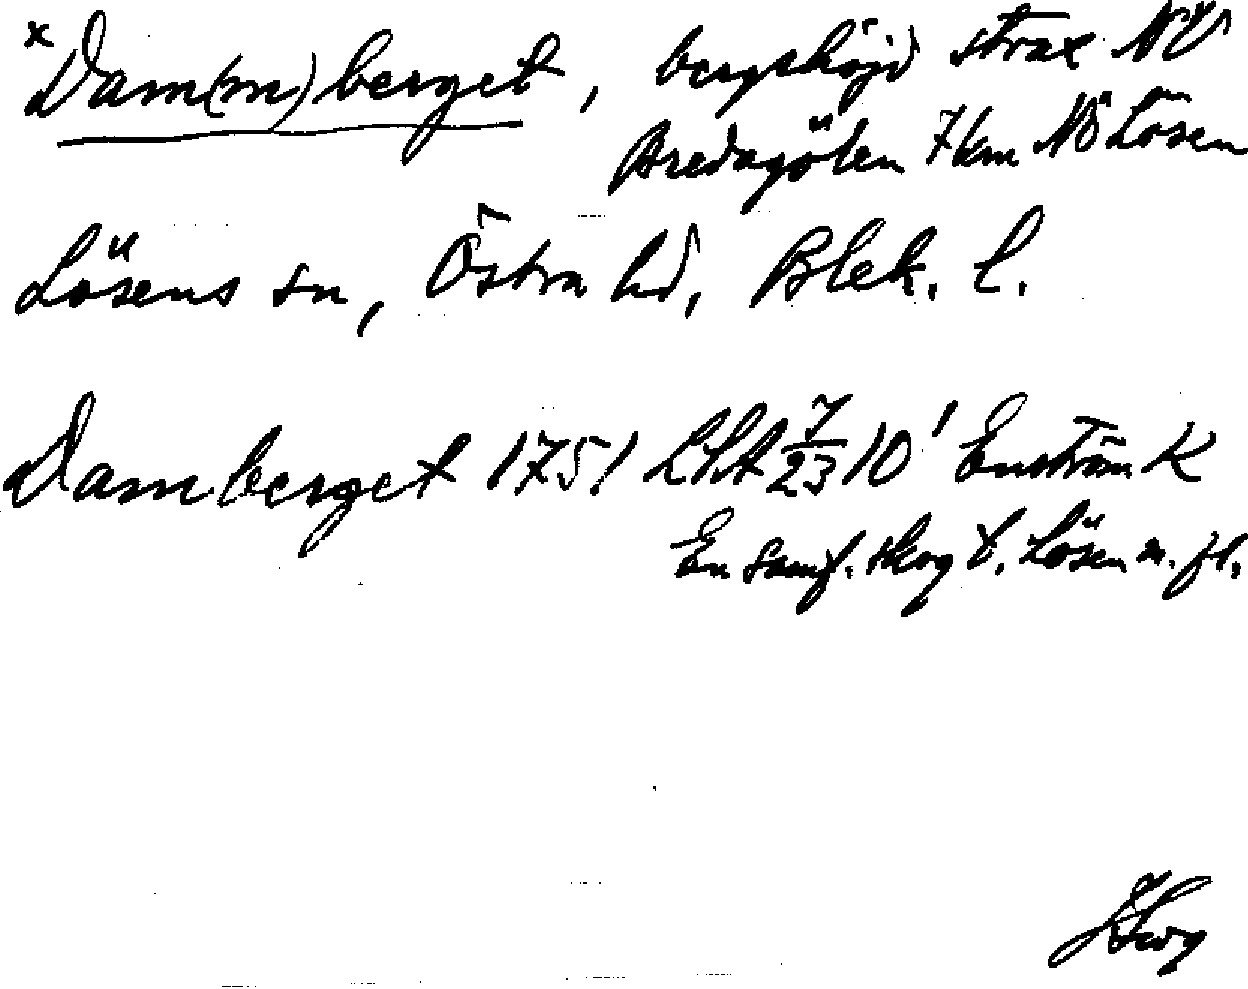 x Dam(m)berget, bergshöjd strax NV
Bredagölen 7 km NÖ Lösen
Lösens sn, Östra hd, Blek. l.
Damberget 1751 LSA 7/23 10¹ Enström K
En samf. skog t. Lösen m. fl.